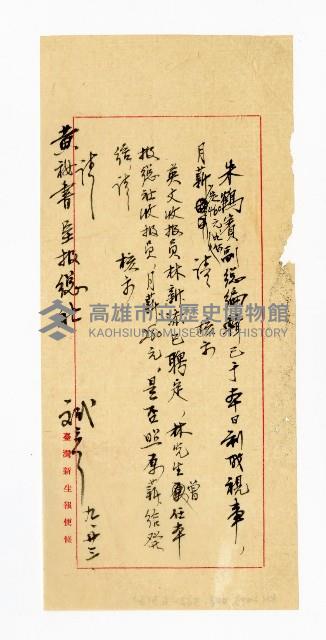 朱鶴賓副總編輯已于本日到職視事,
月薪 元 請 核示
英文收报員林新 已聘定,林先生曾任本
报總社收报員,月薪 元,是否照原薪给發
给,請 核示
請
黄秘書呈报總社
九、廿三
臺灣新生報便條
高雄市立歷史博物館
KAOHSIUNG MUSEUM OF HISTORY